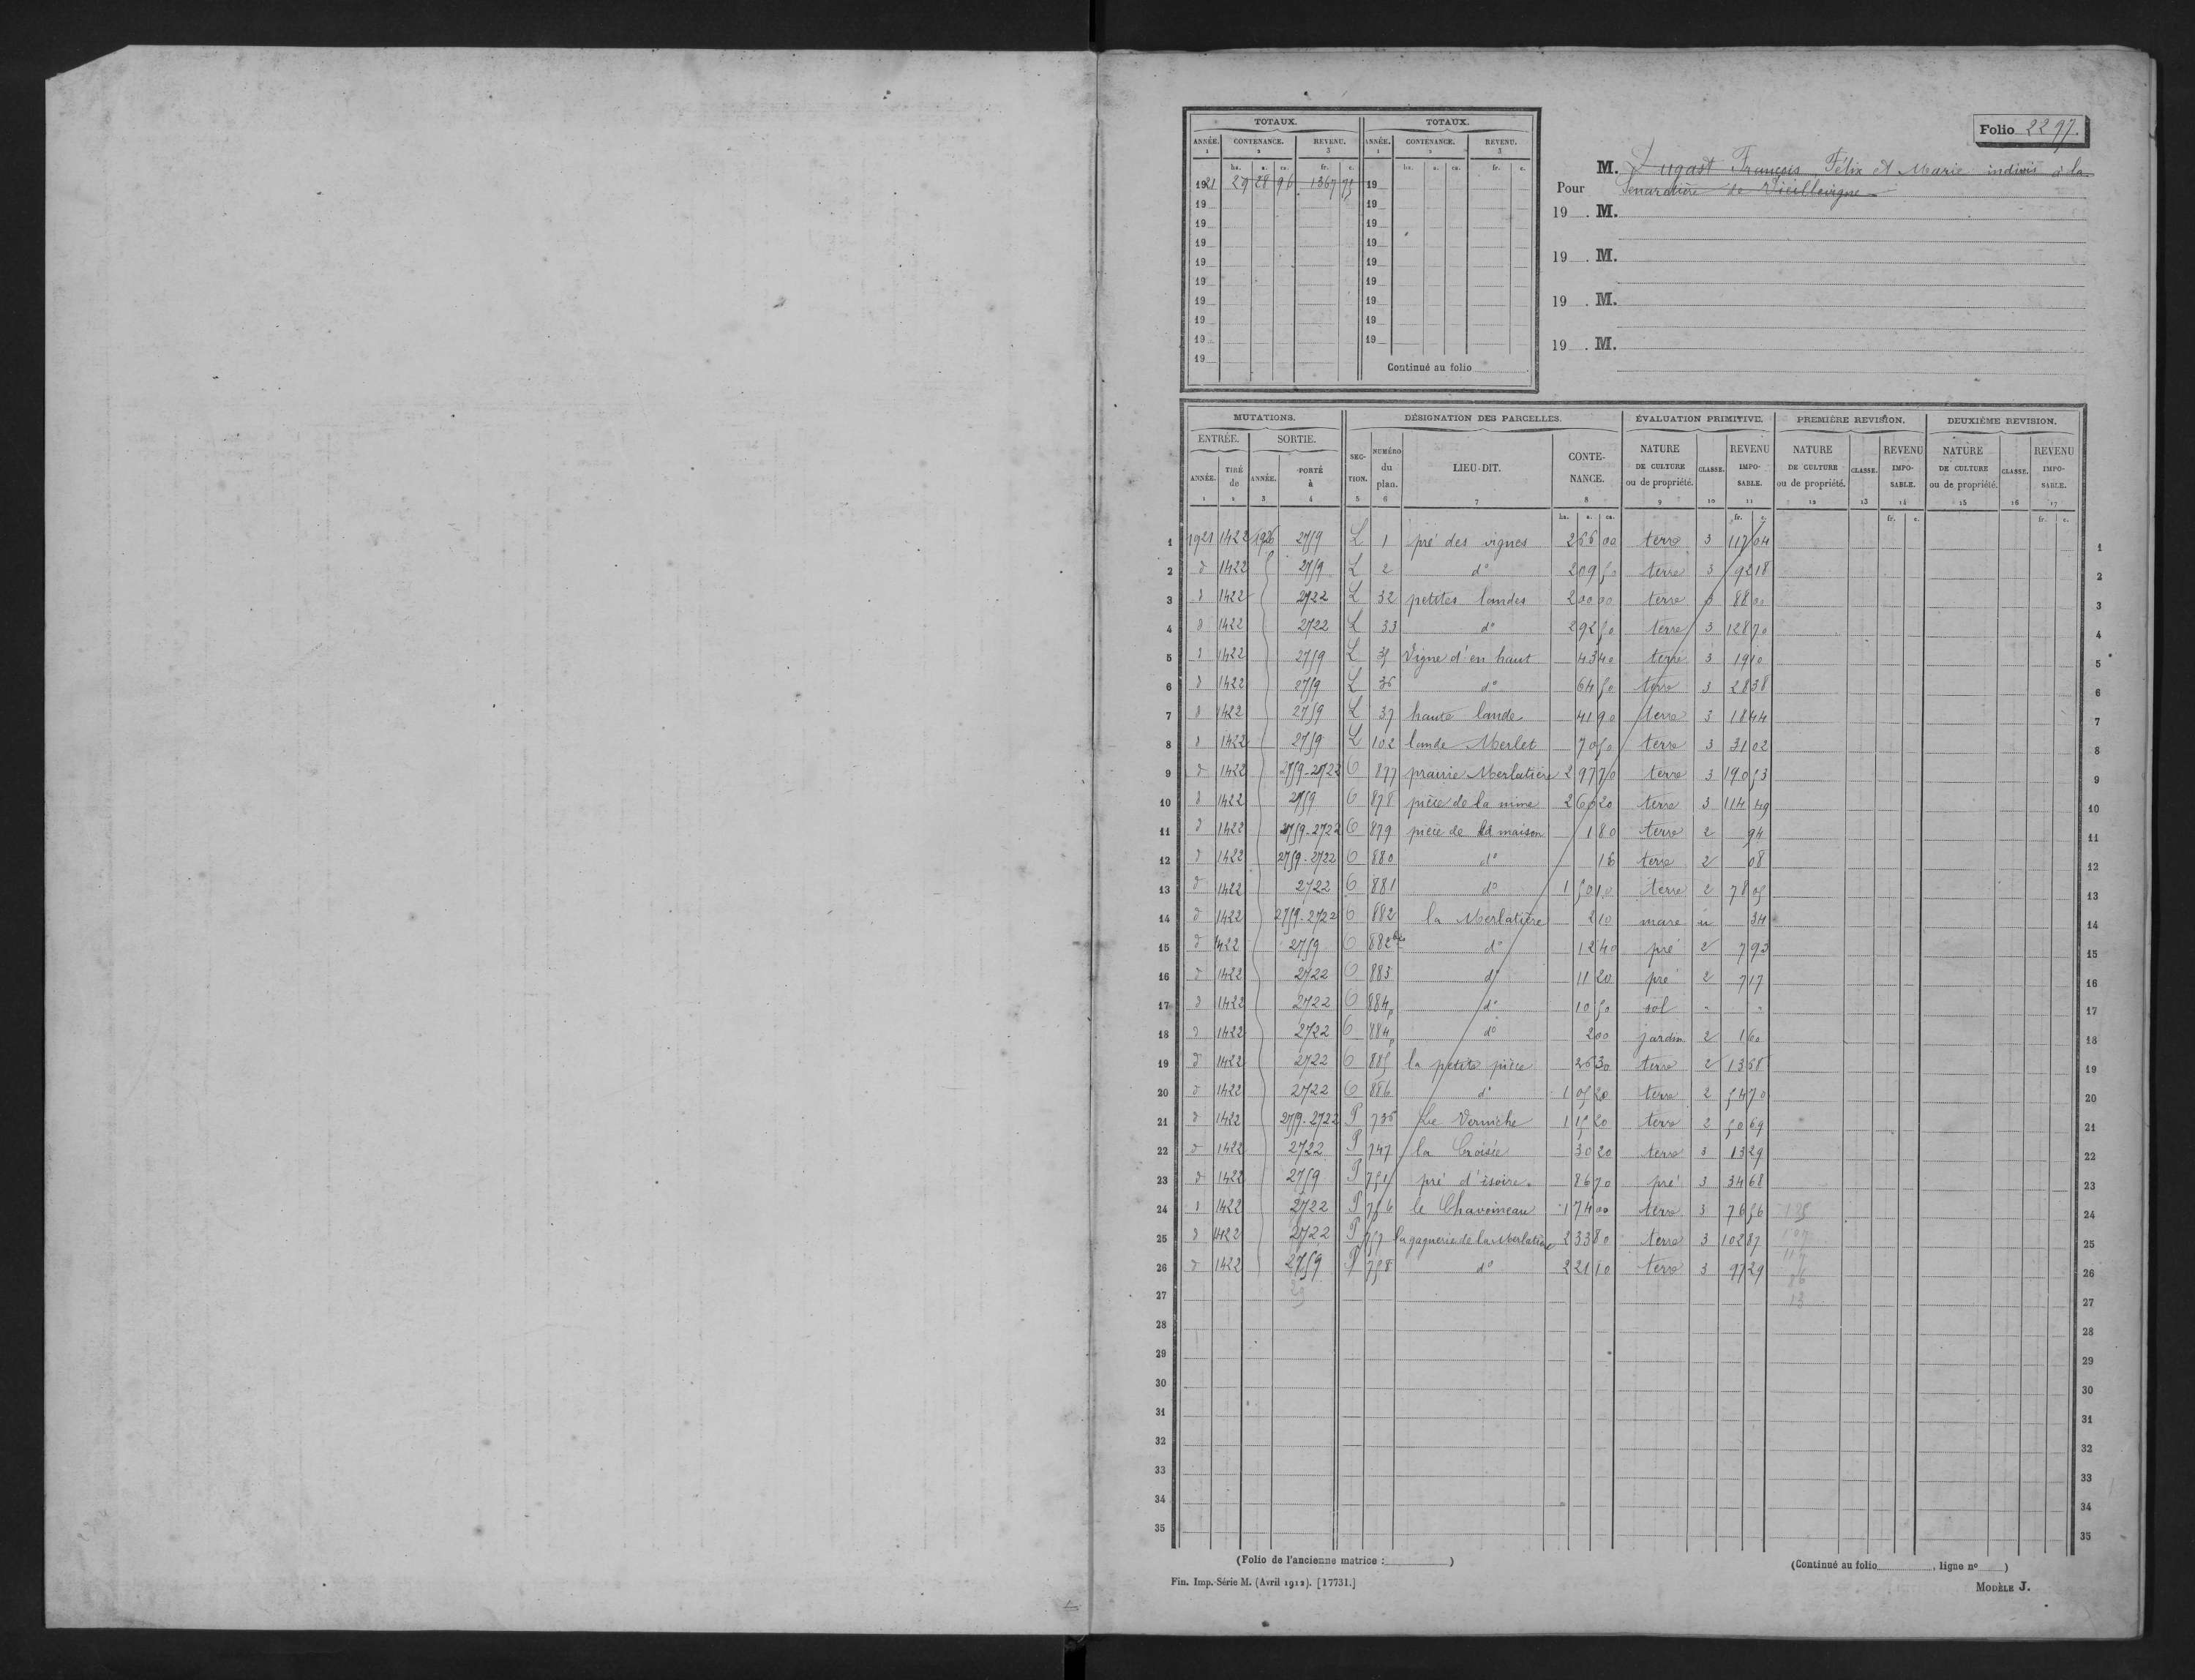 Folio 2297.
TOTAUX. TOTAUX.
ANNÉE. CONTENANCE. REVENU. ANNÉE. CONTENANCE. REVENU.
1 2 3 1 2 3
ha. a. ca. fr. c. ha. a. ca. fr. c.
1921 29 28 96 1367 75 19
19 19
19 19
19 19
19 19
19 19
19 19
19 19
19 19
19 Continué au folio
M. Dugast François, Félix et Marie indivis à la
Pour de Vieillevigne
19 . M.
19 . M.
19 . M.
19 . M.
MUTATIONS. DÉSIGNATION DES PARCELLES. ÉVALUATION PRIMITIVE. PREMIÈRE REVISION. DEUXIÈME REVISION.
ENTRÉE. SORTIE. SECTION. NUMÉRO du plan. LIEU-DIT. CONTENANCE. NATURE DE CULTURE ou de propriété. CLASSE. REVENU IMPOSABLE. NATURE DE CULTURE ou de propriété. CLASSE. REVENU IMPOSABLE. NATURE DE CULTURE ou de propriété. CLASSE. REVENU IMPOSABLE.
ANNÉE. TIRÉ de ANNÉE. PORTÉ à
1 2 3 4 5 6 7 8 9 10 11 12 13 14 15 16 17
ha. a. ca. fr. c. fr. c. fr. c.
1 1921 1422 1926 2759 L 1 pré des vignes 2 66 00 terre 3 117 04 1
2 d 1422 2759 L 2 do 2 09 50 terre 3 92 18 2
3 d 1422 2722 L 32 petites landes 2 00 00 terre 3 88 00 3
4 d 1422 2722 L 33 do 2 92 50 terre 3 128 70 4
5 d 1422 2759 L 35 Vigne d'en haut 43 40 terre 3 19 10 5
6 d 1422 2759 L 36 do 64 50 terre 3 28 38 6
7 d 1422 2759 L 37 haute lande 41 90 terre 3 18 44 7
8 d 1422 2759 L 102 lande Merlet 70 50 terre 3 31 02 8
9 d 1422 2759-2722 O 877 prairie Merlatière 2 97 70 terre 3 190 53 9
10 d 1422 2759 O 878 pièce de la mine 2 60 20 terre 3 114 49 10
11 d 1422 2759-2722 O 879 pièce de la maison 1 80 terre 2 94 11
12 d 1422 2759-2722 O 880 do 16 terre 2 08 12
13 d 1422 2722 O 881 do 1 50 10 terre 2 78 05 13
14 d 1422 2759-2722 O 882 la Merlatière 2 10 mare u 34 14
15 d 1422 2759 O 882 bis do 12 40 pré 2 7 93 15
16 d 1422 2722 O 883 do 11 20 pré 2 7 17 16
17 d 1422 2722 O 884p do 10 50 sol - - 17
18 d 1422 2722 O 884p do 2 00 jardin 2 1 60 18
19 d 1422 2722 O 885 la petite pièce 26 30 terre 2 13 68 19
20 d 1422 2722 O 886 do 1 05 20 terre 2 54 70 20
21 d 1422 2759-2722 P 736 Le Vernèche 1 15 20 terre 2 50 69 21
22 d 1422 2722 P 747 la Croisée 30 20 terre 3 13 29 22
23 d 1422 2759 P 751 pré d'isoire. 86 70 pré 3 34 68 23
24 d 1422 2722 P 756 le Chavoineau 1 74 00 terre 3 76 56 24
25 d 1422 2722 P 757 la gagnerie de la Merlatière 2 33 80 terre 3 102 87 25
26 d 1422 2759 P 758 do 2 21 10 terre 3 97 29 26
27 27
28 28
29 29
30 30
31 31
32 32
33 33
34 34
35 35
(Folio de l'ancienne matrice : ) (Continué au folio , ligne no )
Fin. Imp. Série M. (Avril 1912). [17731.] MODÈLE J.